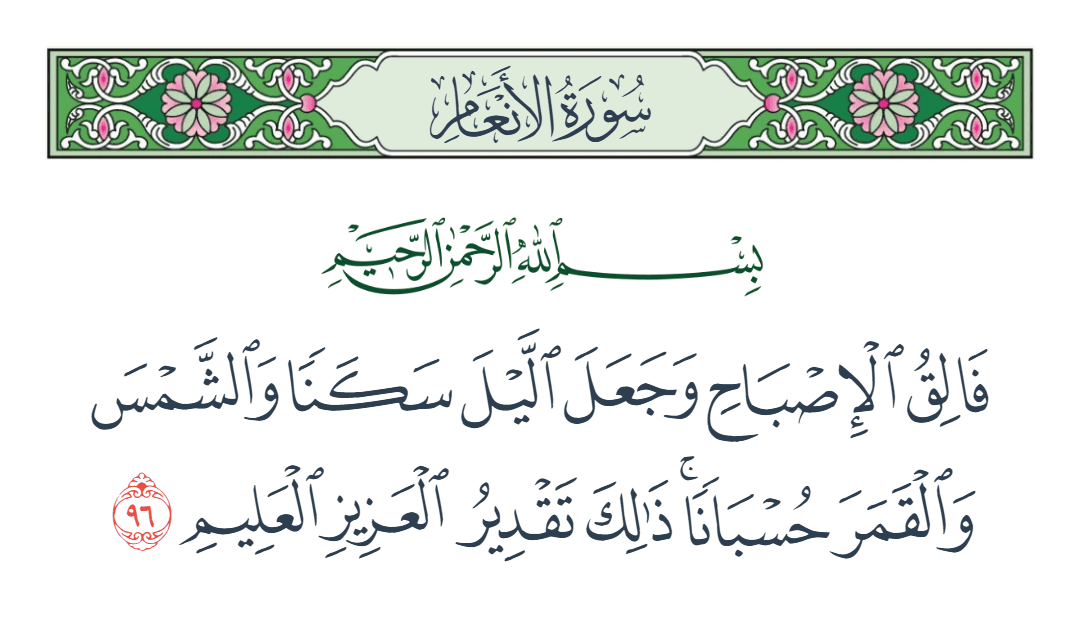 سُورَةُ الأَنْعَامِ
بِسْمِ ٱللَّهِ ٱلرَّحْمَٰنِ ٱلرَّحِيمِ
فَالِقُ ٱلْإِصْبَاحِ وَجَعَلَ ٱلَّيْلَ سَكَنًا وَٱلشَّمْسَ
وَٱلْقَمَرَ حُسْبَانًا ۚ ذَٰلِكَ تَقْدِيرُ ٱلْعَزِيزِ ٱلْعَلِيمِ ٩٦